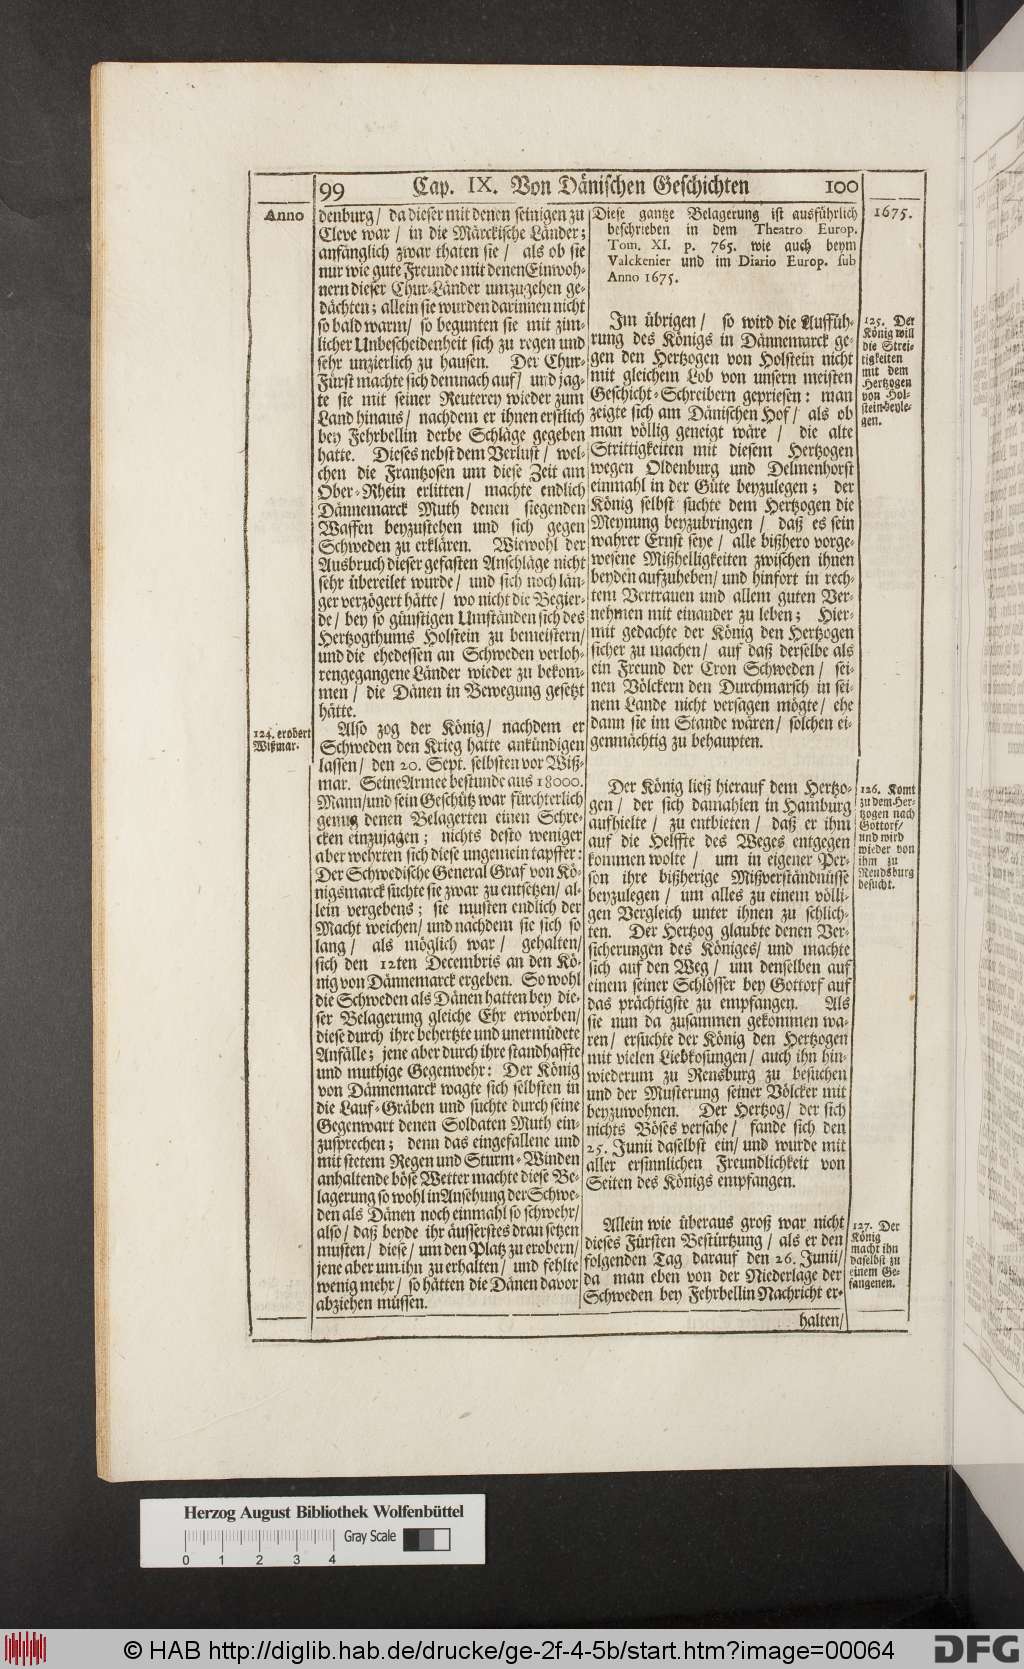 99 Cap. IX. Von Dänischen Geschichten 100
Anno
denburg / da dieser mit denen seinigen zu
Cleve war / in die Märckische Länder;
anfänglich zwar thaten sie / als ob sie
nur wie gute Freunde mit denen Einwoh-
nern dieser Chur-Länder umzugehen ge-
dächten; allein sie wurden darinnen nicht
so bald warm / so begunten sie mit zim-
licher Unbescheidenheit sich zu regen und
sehr unzierlich zu hausen. Der Chur-
Fürst machte sich demnach auf / und jag-
te sie mit seiner Reuterey wieder zum
Land hinaus / nachdem er ihnen erstlich
bey Fehrbellin derbe Schläge gegeben
hatte. Dieses nebst dem Verlust / wel-
chen die Frantzosen um diese Zeit am
Ober-Rhein erlitten / machte endlich
Dännemarck Muth denen siegenden
Waffen beyzustehen und sich gegen
Schweden zu erklären. Wiewohl der
Ausbruch dieser gefasten Anschläge nicht
sehr übereilet wurde / und sich noch län-
ger verzögert hätte / wo nicht die Begier-
de / bey so günstigen Umständen sich des
Hertzogthums Holstein zu bemeistern /
und die ehedessen an Schweden verloh-
rengegangene Länder wieder zu bekom-
men / die Dänen in Bewegung gesetzt
hätte.
124. erobert
Wißmar.
Also zog der König / nachdem er
Schweden den Krieg hatte ankündigen
lassen / den 20. Sept. selbsten vor Wiß-
mar. Seine Armee bestunde aus 18000.
Mann / und sein Geschütz war fürchterlich
genug denen Belagerten einen Schre-
cken einzujagen; nichts desto weniger
aber wehrten sich diese ungemein tapffer:
Der Schwedische General Graf von Kö-
nigsmarck suchte sie zwar zu entsetzen / al-
lein vergebens; sie musten endlich der
Macht weichen / und nachdem sie sich so
lang / als möglich war / gehalten /
sich den 12ten Decembris an den Kö-
nig von Dännemarck ergeben. So wohl
die Schweden als Dänen hatten bey die-
ser Belagerung gleiche Ehr erworben /
diese durch ihre behertzte und unermüdete
Anfälle; jene aber durch ihre standhaffte
und muthige Gegenwehr: Der König
von Dännemarck wagte sich selbsten in
die Lauf-Gräben und suchte durch seine
Gegenwart denen Soldaten Muth ein-
zusprechen; denn das eingefallene und
mit stetem Regen und Sturm-Winden
anhaltende böse Wetter machte diese Be-
lagerung so wohl in Ansehung der Schwe-
den als Dänen noch einmahl so schwehr /
also / daß beyde ihr äusserstes dran setzen
musten / diese / um den Platz zu erobern /
jene aber um ihn zu erhalten / und fehlte
wenig mehr / so hätten die Dänen davor
abziehen müssen.
Diese gantze Belagerung ist ausführlich
beschrieben in dem Theatro Europ.
Tom. XI. p. 765. wie auch beym
Valckenier und im Diario Europ. sub
Anno 1675.
1675.
Im übrigen / so wird die Ausfüh-
rung des Königs in Dännemarck ge-
gen den Hertzogen von Holstein nicht
mit gleichem Lob von unsern meisten
Geschicht-Schreibern gepriesen: man
zeigte sich am Dänischen Hof / als ob
man völlig geneigt wäre / die alte
Strittigkeiten mit diesem Hertzogen
wegen Oldenburg und Delmenhorst
einmahl in der Güte beyzulegen; der
König selbst suchte dem Hertzogen die
Meynung beyzubringen / daß es sein
wahrer Ernst seye / alle bißhero vorge-
wesene Mißhelligkeiten zwischen ihnen
beyden aufzuheben / und hinfort in rech-
tem Vertrauen und allem guten Ver-
nehmen mit einander zu leben; Hier-
mit gedachte der König den Hertzogen
sicher zu machen / auf daß derselbe als
ein Freund der Cron Schweden / sei-
nen Völckern den Durchmarsch in sei-
nem Lande nicht versagen mögte / ehe
dann sie im Stande wären / solchen ei-
genmächtig zu behaupten.
125. Der
König will
die Strei-
tigkeiten
mit dem
Hertzogen
von Hol-
stein beyle-
gen.
Der König ließ hierauf dem Hertzo-
gen / der sich damahlen in Hamburg
aufhielte / zu entbieten / daß er ihm
auf die Helffte des Weges entgegen
kommen wolte / um in eigener Per-
son ihre bißherige Mißverständnüsse
beyzulegen / um alles zu einem völli-
gen Vergleich unter ihnen zu schlich-
ten. Der Hertzog glaubte denen Ver-
sicherungen des Königes / und machte
sich auf den Weg / um denselben auf
einem seiner Schlösser bey Gottorf auf
das prächtigste zu empfangen. Als
sie nun da zusammen gekommen wa-
ren / ersuchte der König den Hertzogen
mit vielen Liebkosungen / auch ihn hin-
wiederum zu Rensburg zu besuchen
und der Musterung seiner Völcker mit
beyzuwohnen. Der Hertzog / der sich
nichts Böses versahe / fande sich den
25. Junii daselbst ein / und wurde mit
aller ersinnlichen Freundlichkeit von
Seiten des Königs empfangen.
126. Komt
zu dem Her-
tzogen nach
Gottorf /
und wird
wieder von
ihm zu
Rendsburg
besucht.
Allein wie überaus groß war nicht
dieses Fürsten Bestürtzung / als er den
folgenden Tag darauf den 26. Junii /
da man eben von der Niederlage der
Schweden bey Fehrbellin Nachricht er-
halten /
127. Der
König
macht ihn
daselbst zu
einem Ge-
fangenen.
Herzog August Bibliothek Wolfenbüttel
Gray Scale
0 1 2 3 4
© HAB http://diglib.hab.de/drucke/ge-2f-4-5b/start.htm?image=00064
DFG